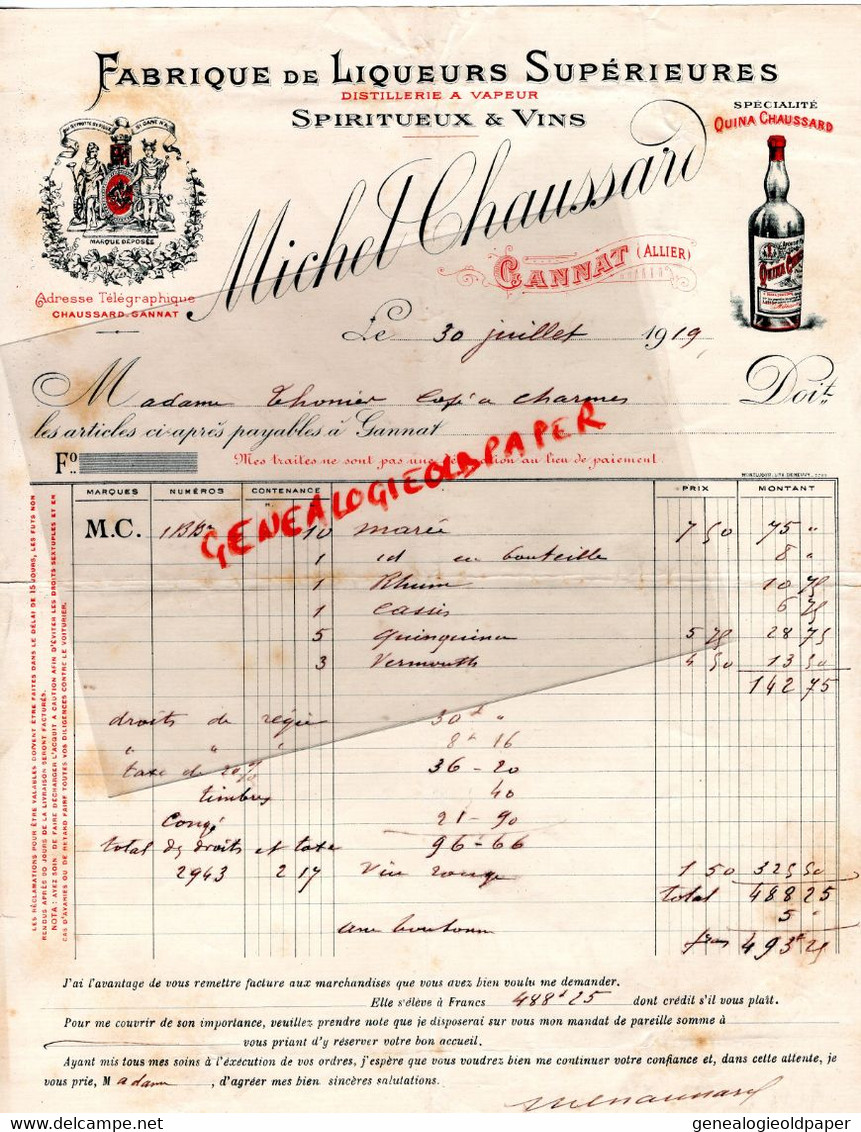 FABRIQUE DE LIQUEURS SUPÉRIEURES
DISTILLERIE A VAPEUR
SPIRITUEUX & VINS
SPÉCIALITÉ
QUINA CHAUSSARD
MARQUE DÉPOSÉE
Michel Chaussard
GANNAT (ALLIER)
QUINA
Adresse Télégraphique
CHAUSSARD-GANNAT
Le 30 juillet 1919
Madame Thonier Café a Charmes Doit
les articles ci-après payables à Gannat
Fo Mes traites ne sont pas une au lieu de paiement.
GENEALOGIEOLDPAPER
MARQUES NUMÉROS CONTENANCE PRIX MONTANT
M.C. 10 marée 7 50 75 "
1 id en bouteille 8 "
1 Rhum 10 75
1 Cassis 6 75
5 Quinquina 5 75 28 75
3 Vermouth 4 50 13 50
142 75
droits de régie 30 "
" " " 8 16
taxe de 20% 36-20
timbres 40
Congé 21-90
total des droits et taxe 96-66
2943 217 Vin rouge 1 50 325 50
total 488 25
5 "
une bonbonne
frs 493 25
LES RÉCLAMATIONS POUR ÊTRE VALABLES DOIVENT ÊTRE FAITES DANS LE DÉLAI DE 15 JOURS, LES FUTS NON
RENDUS APRÈS 90 JOURS DE LA LIVRAISON SERONT FACTURÉS.
NOTA : AYEZ SOIN DE FAIRE DÉCHARGER L'ACQUIT A CAUTION AFIN D'ÉVITER LES DROITS SEXTUPLES ET EN
CAS D'AVARIES OU DE RETARD FAIRE TOUTES VOS DILIGENCES CONTRE LE VOITURIER.
J'ai l'avantage de vous remettre facture aux marchandises que vous avez bien voulu me demander.
Elle s'élève à Francs 488 25 dont crédit s'il vous plaît.
Pour me couvrir de son importance, veuillez prendre note que je disposerai sur vous mon mandat de pareille somme à
vous priant d'y réserver votre bon accueil.
Ayant mis tous mes soins à l'exécution de vos ordres, j'espère que vous voudrez bien me continuer votre confiance et, dans cette attente, je
vous prie, Madame, d'agréer mes bien sincères salutations.
www.delcampe.net genealogieoldpaper